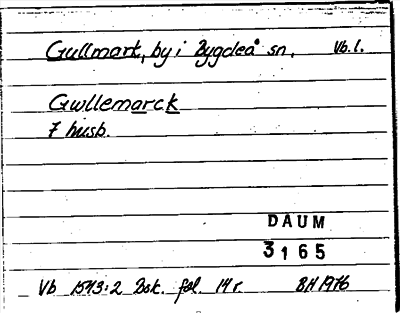 Gullmark, by i Bygdeå sn, Vb.l.
Gwllemarck
7 husb.
DAUM
3165
Vb 1543:2 Bsk. fol. 14 r. BH 1976